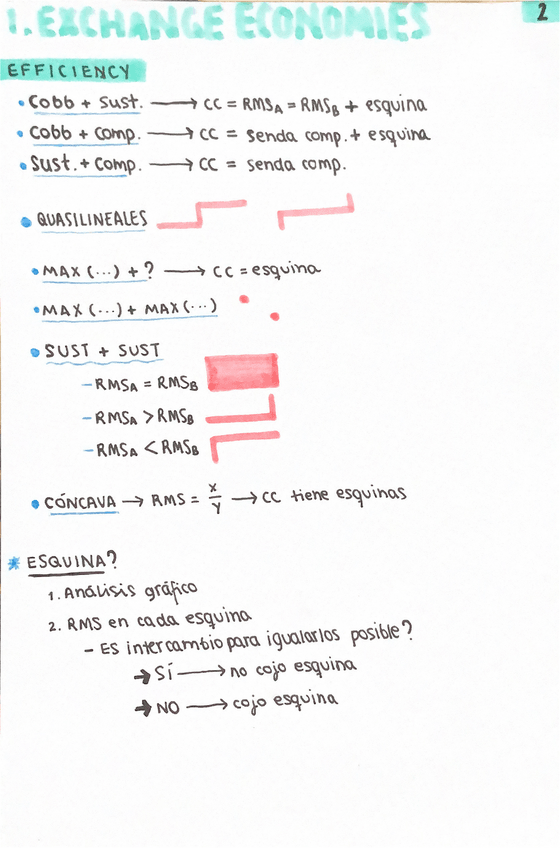 1. EXCHANGE ECONOMIES
2
EFFICIENCY
• Cobb + Sust. → CC = RMS_A = RMS_B + esquina
• Cobb + Comp. → CC = Senda comp. + esquina
• Sust. + Comp. → CC = senda comp.
• QUASILINEALES
• MAX (...) + ? → CC = esquina
• MAX (...) + MAX (...)
• SUST + SUST
– RMS_A = RMS_B
– RMS_A > RMS_B
– RMS_A < RMS_B
• CÓNCAVA → RMS = X/Y → CC tiene esquinas
* ESQUINA?
1. Análisis gráfico
2. RMS en cada esquina
– ES intercambio para igualarlos posible?
→ SÍ → no cojo esquina
→ NO → cojo esquina